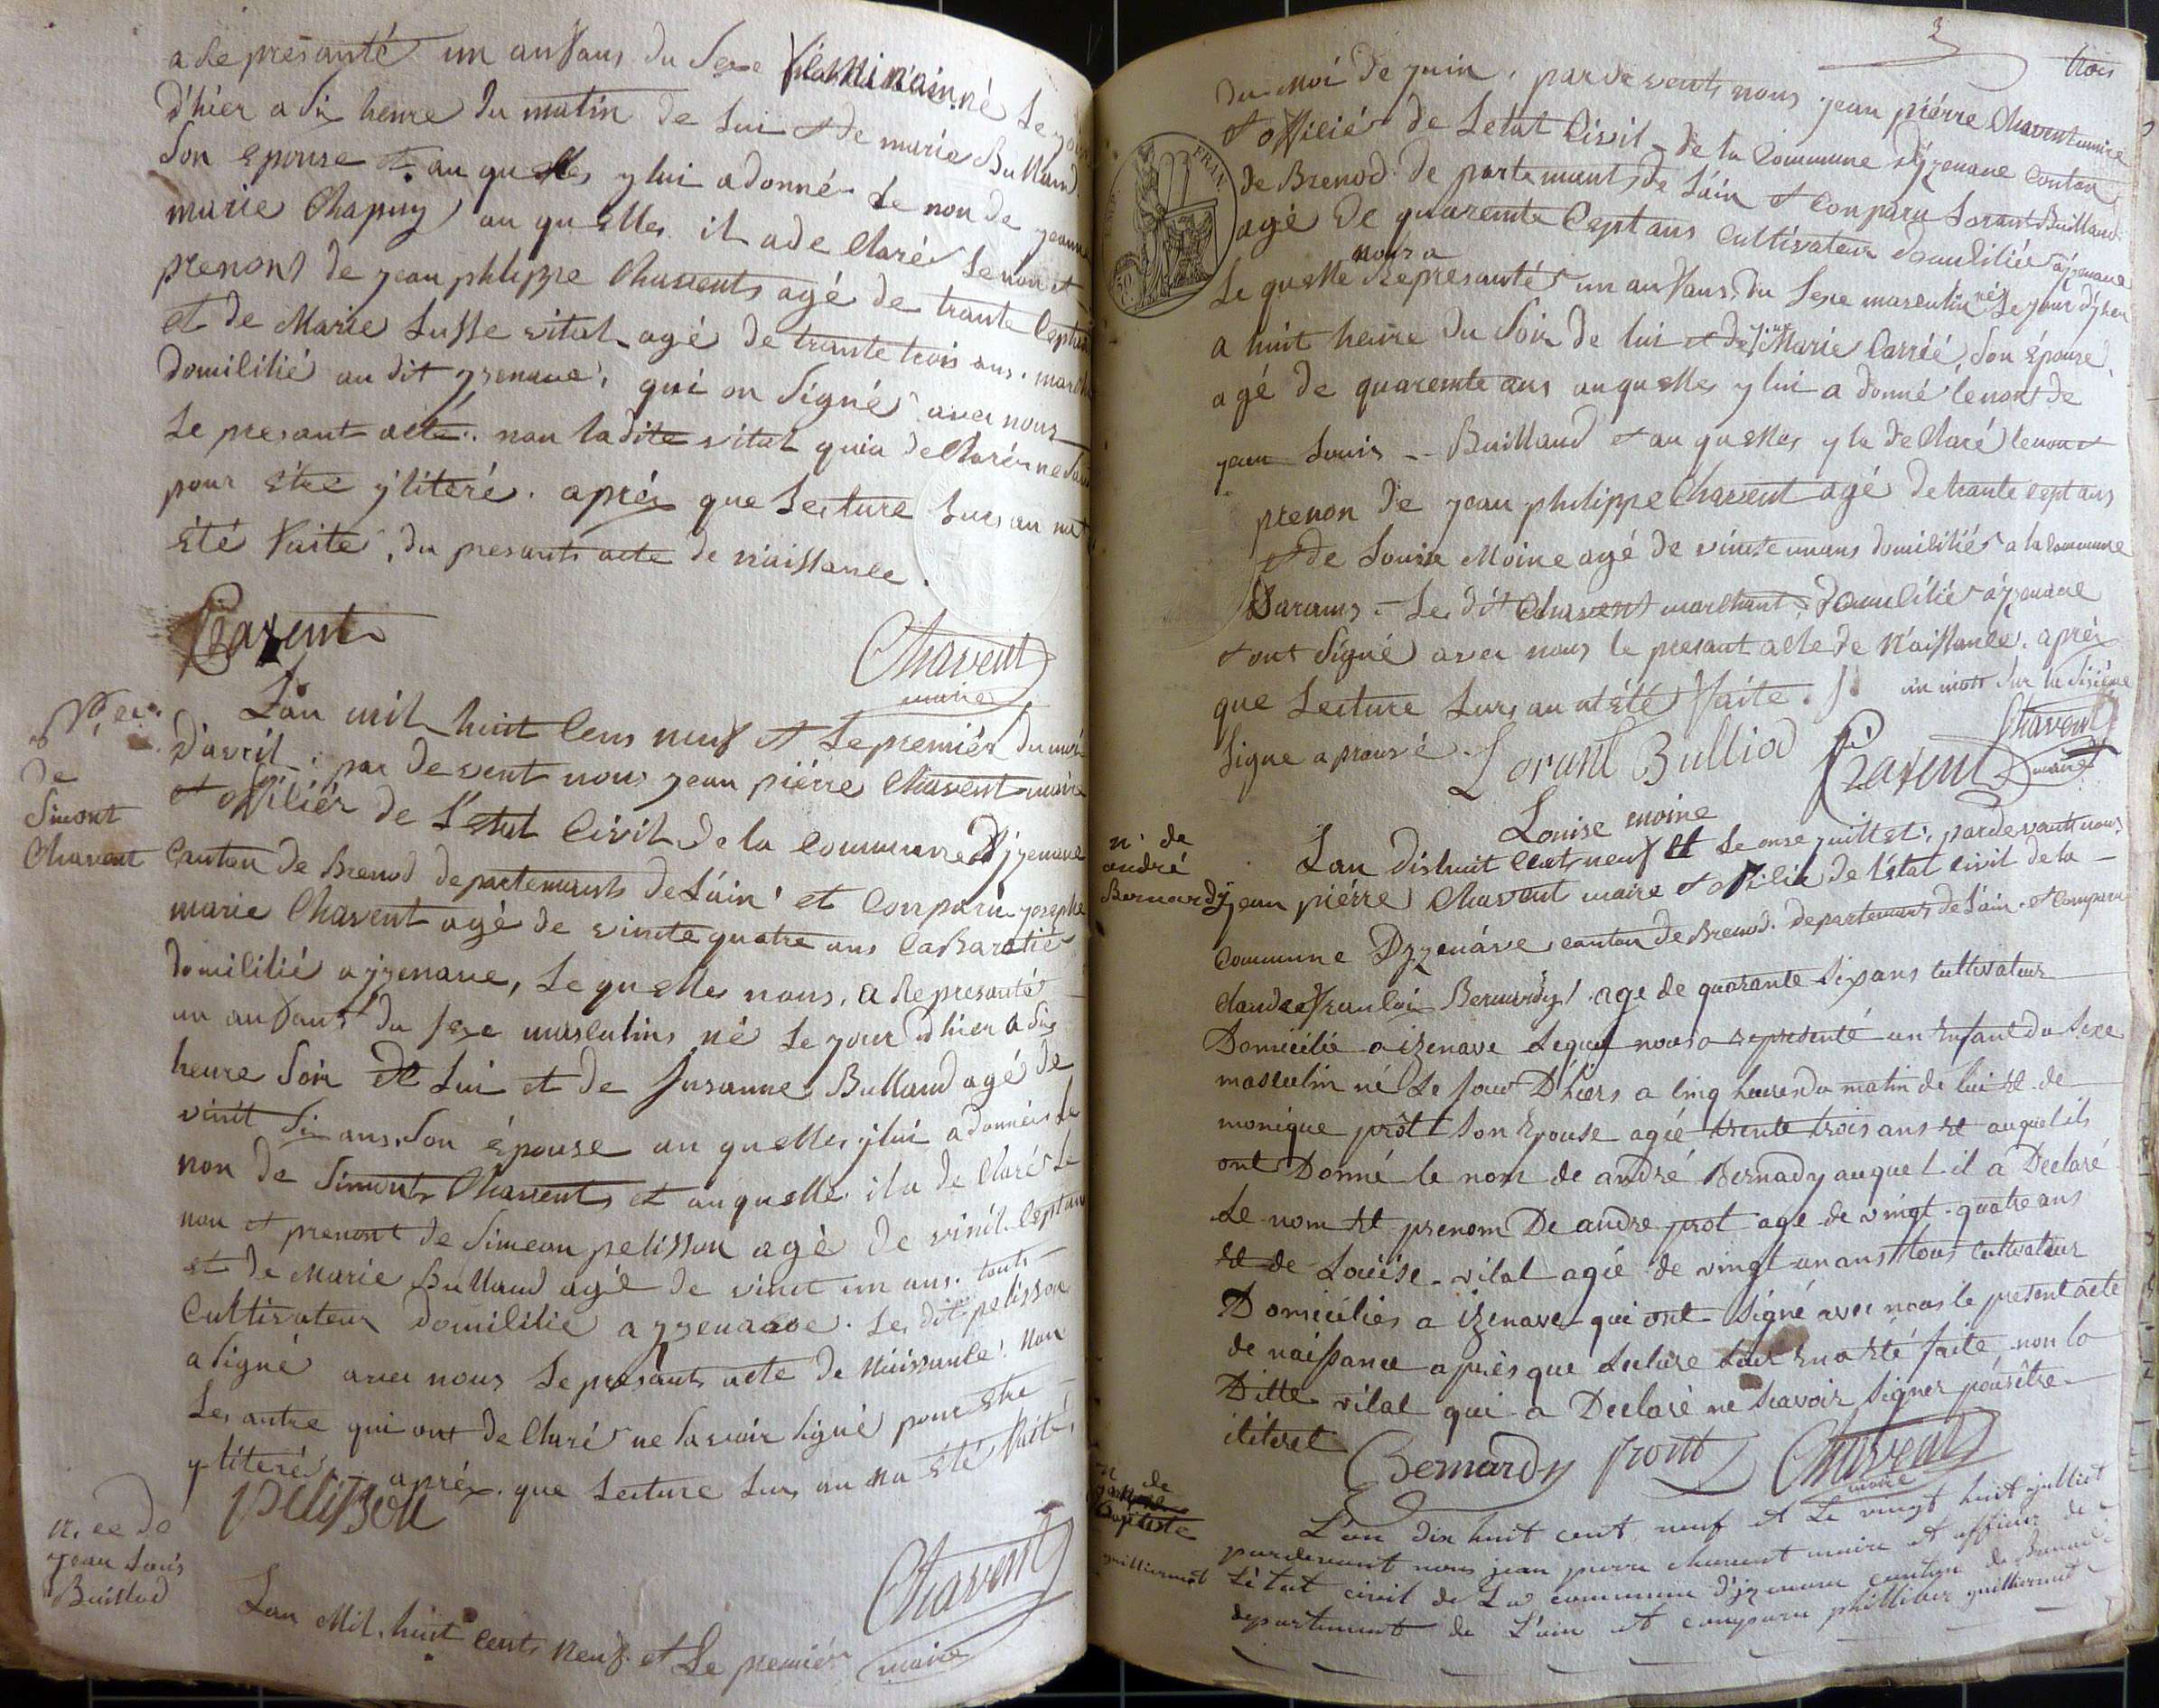 a Representé un anfans du sexe né Le jour
d'hier a Six heure du matin de Lui et de marie Bulland
Son Epouse et. au quelles y lui a donné Le non de jeanne
marie Chapuy au quelles il a declaré Le non et
prenont de jean phlippe Chavents agé de trante Cept ans
et de Marie Susse vital agé de trante trois ans. march
Domililié au dit yzenave, qui on Signé avec nous
Le presant acte. non la dite vital qui a declaré ne
pour Etre y literé. aprés que Lecture Leurs an nat
Eté faite, du presants acte de naissance.
Chavent
Chavent
maire
N.ce
de
Simont
Chavent
L'an mil huit Cens neuf et Le premiér du moi
D'avril, par devent nous jean piérre Chavent maire
et offiliér de L'Etat Civil de la Commune D'yzenave
Canton de Brenod departements de L'ain et Conparu josephe
marie Chavent agé de vinte quatre ans CaBaratiér
domililié a yzenave, Le quelles nous, a Represanté
un anfans du sexe masculins né Le jour d'hier a Six
heure Soir de Lui et de Susanne Bulland agé de
vinit Six ans, Son épouse au quelles y lui a donnér Le
non de Simonts Chavents et au quelle il a declaré Le
non et prenont de Simeon pelisson agé de vinit Cept ans
et de Marie Bulland agé de vinct un ans. touts
Cultivateur domililie a yzenave. Le, dit pelisson
a Signé avec nous Le presants acte de Naissance. Non
Les autre qui ont declaré ne Savoir Signé pour Etre
y literé aprés que Lecture Leurs an na Eté faite,
pelisson
Chavent
maire
N. ce de
jean Louis
Buillod
L'an Mil, huit Cents Neuf. et Le premiér
3
trois
du Moi de juin, par devents nous jean piérre Chavent maire
et offiliér de L'état Civil de la Commune d'yzenave Canton
de Brenod departements de L'ain et Conparu Lorant Builland
agé de quaremte Cept ans Cultivateur domililiér a yzenave
Le quelle nous a Represantés un anfans du Sexe masculin né Le jour d'yher
a huit heure du Soir de lui et de Marie Carriée, Son Epouse,
agé de quaremte ans au quelles y lui a donné le nont de
jean Louis -- Builland et au quelles y la declaré le non et
prenon de jean philippe Chavent agé de trante cept ans
et de Louise Moine agé de vinte un ans domililiés a la Commune
- Le, dit Chavent marchant, Domililiér a yzenave
et ont Signé avec nous le presant acte de Naissance. aprés
que Lecture Leurs an at été faite. un mott Sur la Sixiéme
ligne aprouvé.
Lorant Bulliod
Chavent
Chavent
maire
Louise moine
n. de
andré
Bernardy
L'an Dishuit Cent neuf Et Le onse juillet, pardevant nous
jean piérre Chavent maire et offilie de l'état civil de la
Commune D'yzenave canton de Brenod. departements de L'ain. et Comparu
Claude françois Bernardy, age de quarante Six ans Cultivateur
Domicilié a izenave Lequel nous a representé un Enfant du Sexe
masculin né Le jour D'hiers a Cinq heures du matin de lui Et de
monique prôt Son Epouse agée trente trois ans Et auquel ils
ont Donné le nom de andré Bernady auquel il a Declaré
Le nom Et prenom De andré prot age de vingt-quatre ans
Et de Loüise vital agée de vingt un ans tous Cultivateur
Domiciliés a izenave qui ont Signé avec nous le present acte
de naissance aprés que Lecture Leur En a Eté faite, non la
Ditte vital qui a Declaré ne Scavoir Signer pour être
iliteret
Bernardy prott Chavent
maire
n de
Baptiste
guilliermet
L'an dix huit cent neuf et Le vingt huit juilliet
pardevant nous jean pierre chavent maire et officier de
L'état civil de La commune d'yzenave canton de Brenod
departement de L'ain et comparu philliber guilliermet